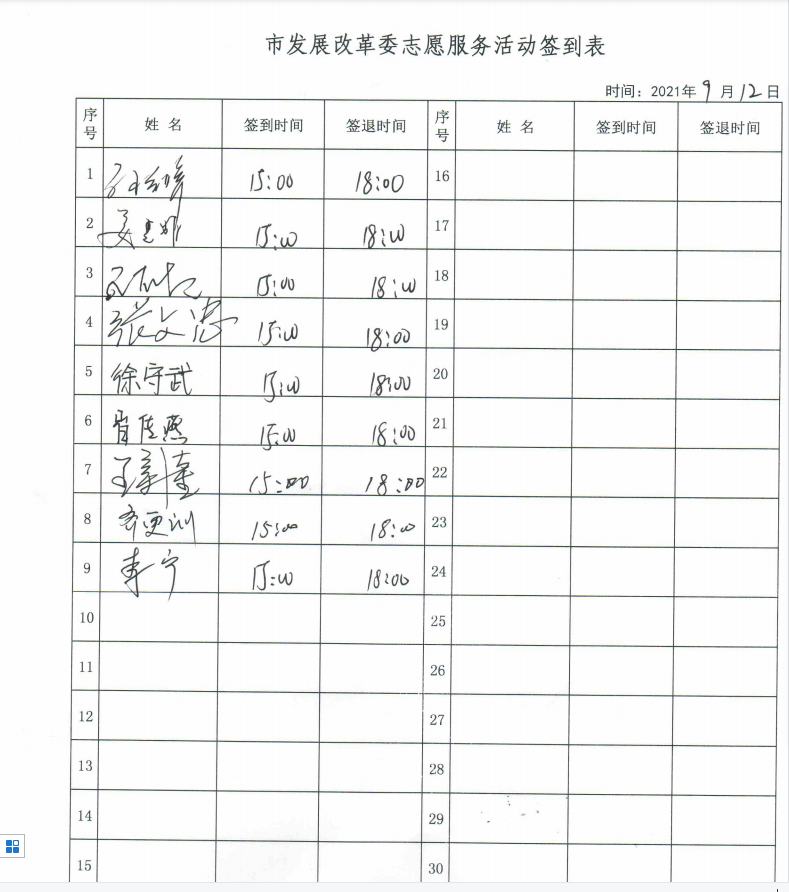 市发展改革委志愿服务活动签到表
时间：2021年9月12日
序号 姓名 签到时间 签退时间 序号 姓名 签到时间 签退时间
1 15:00 18:00 16
2 15:00 18:00 17
3 15:00 18:00 18
4 张文忠 15:00 18:00 19
5 徐守武 15:00 18:00 20
6 肖佳燕 15:00 18:00 21
7 15:00 18:00 22
8 齐更训 15:00 18:00 23
9 李宁 15:00 18:00 24
10 25
11 26
12 27
13 28
14 29
15 30